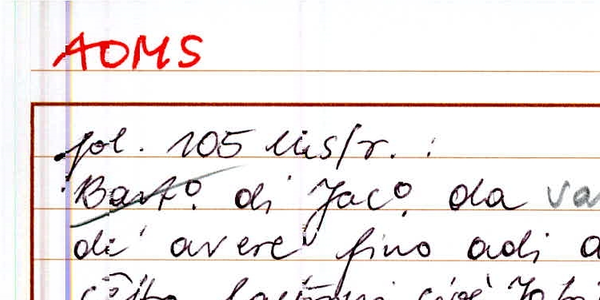 AOMS
fol. 105 lus/r. :
Bart.º di Jac.º da va
di avere fino adi a